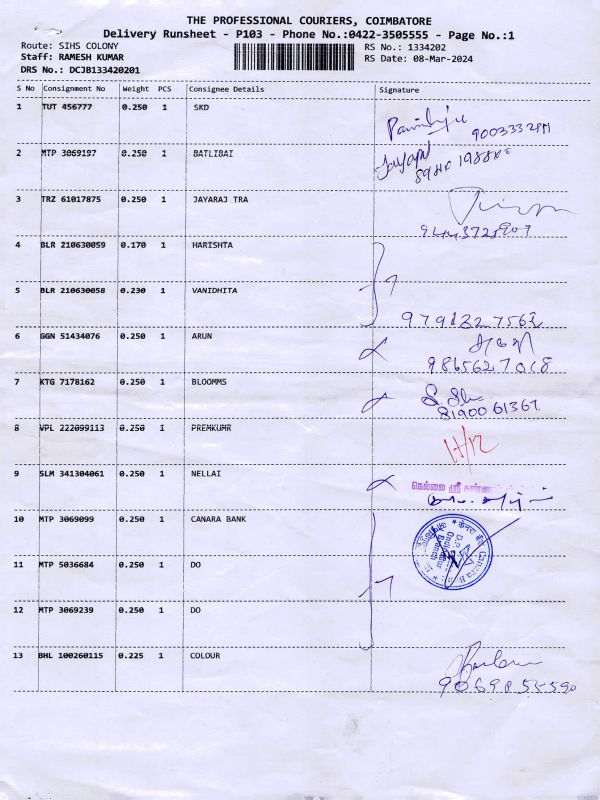 THE PROFESSIONAL COURIERS, COIMBATORE
Delivery Runsheet - P103 - Phone No.:0422-3505555 - Page No.:1
Route: SIHS COLONY RS No.: 1334202
Staff: RAMESH KUMAR RS Date: 08-Mar-2024
DRS No.: DCJB133420201
S No Consignment No Weight PCS Consignee Details Signature
1 TUT 456777 0.250 1 SKD
2 MTP 3069197 0.250 1 BATLIBAI
3 TRZ 61017875 0.250 1 JAYARAJ TRA
4 BLR 210630059 0.170 1 HARISHTA
5 BLR 210630058 0.230 1 VANIDHITA
9791227562
6 GGN 51434076 0.250 1 ARUN
9865627018
7 KTG 7178162 0.250 1 BLOOMMS
8190061367
8 VPL 222099113 0.250 1 PREMKUMR
9 SLM 341304061 0.250 1 NELLAI
நெல்லை ஸ்ரீ
10 MTP 3069099 0.250 1 CANARA BANK
11 MTP 5036684 0.250 1 DO
12 MTP 3069239 0.250 1 DO
13 BHL 100260115 0.225 1 COLOUR
9069855590